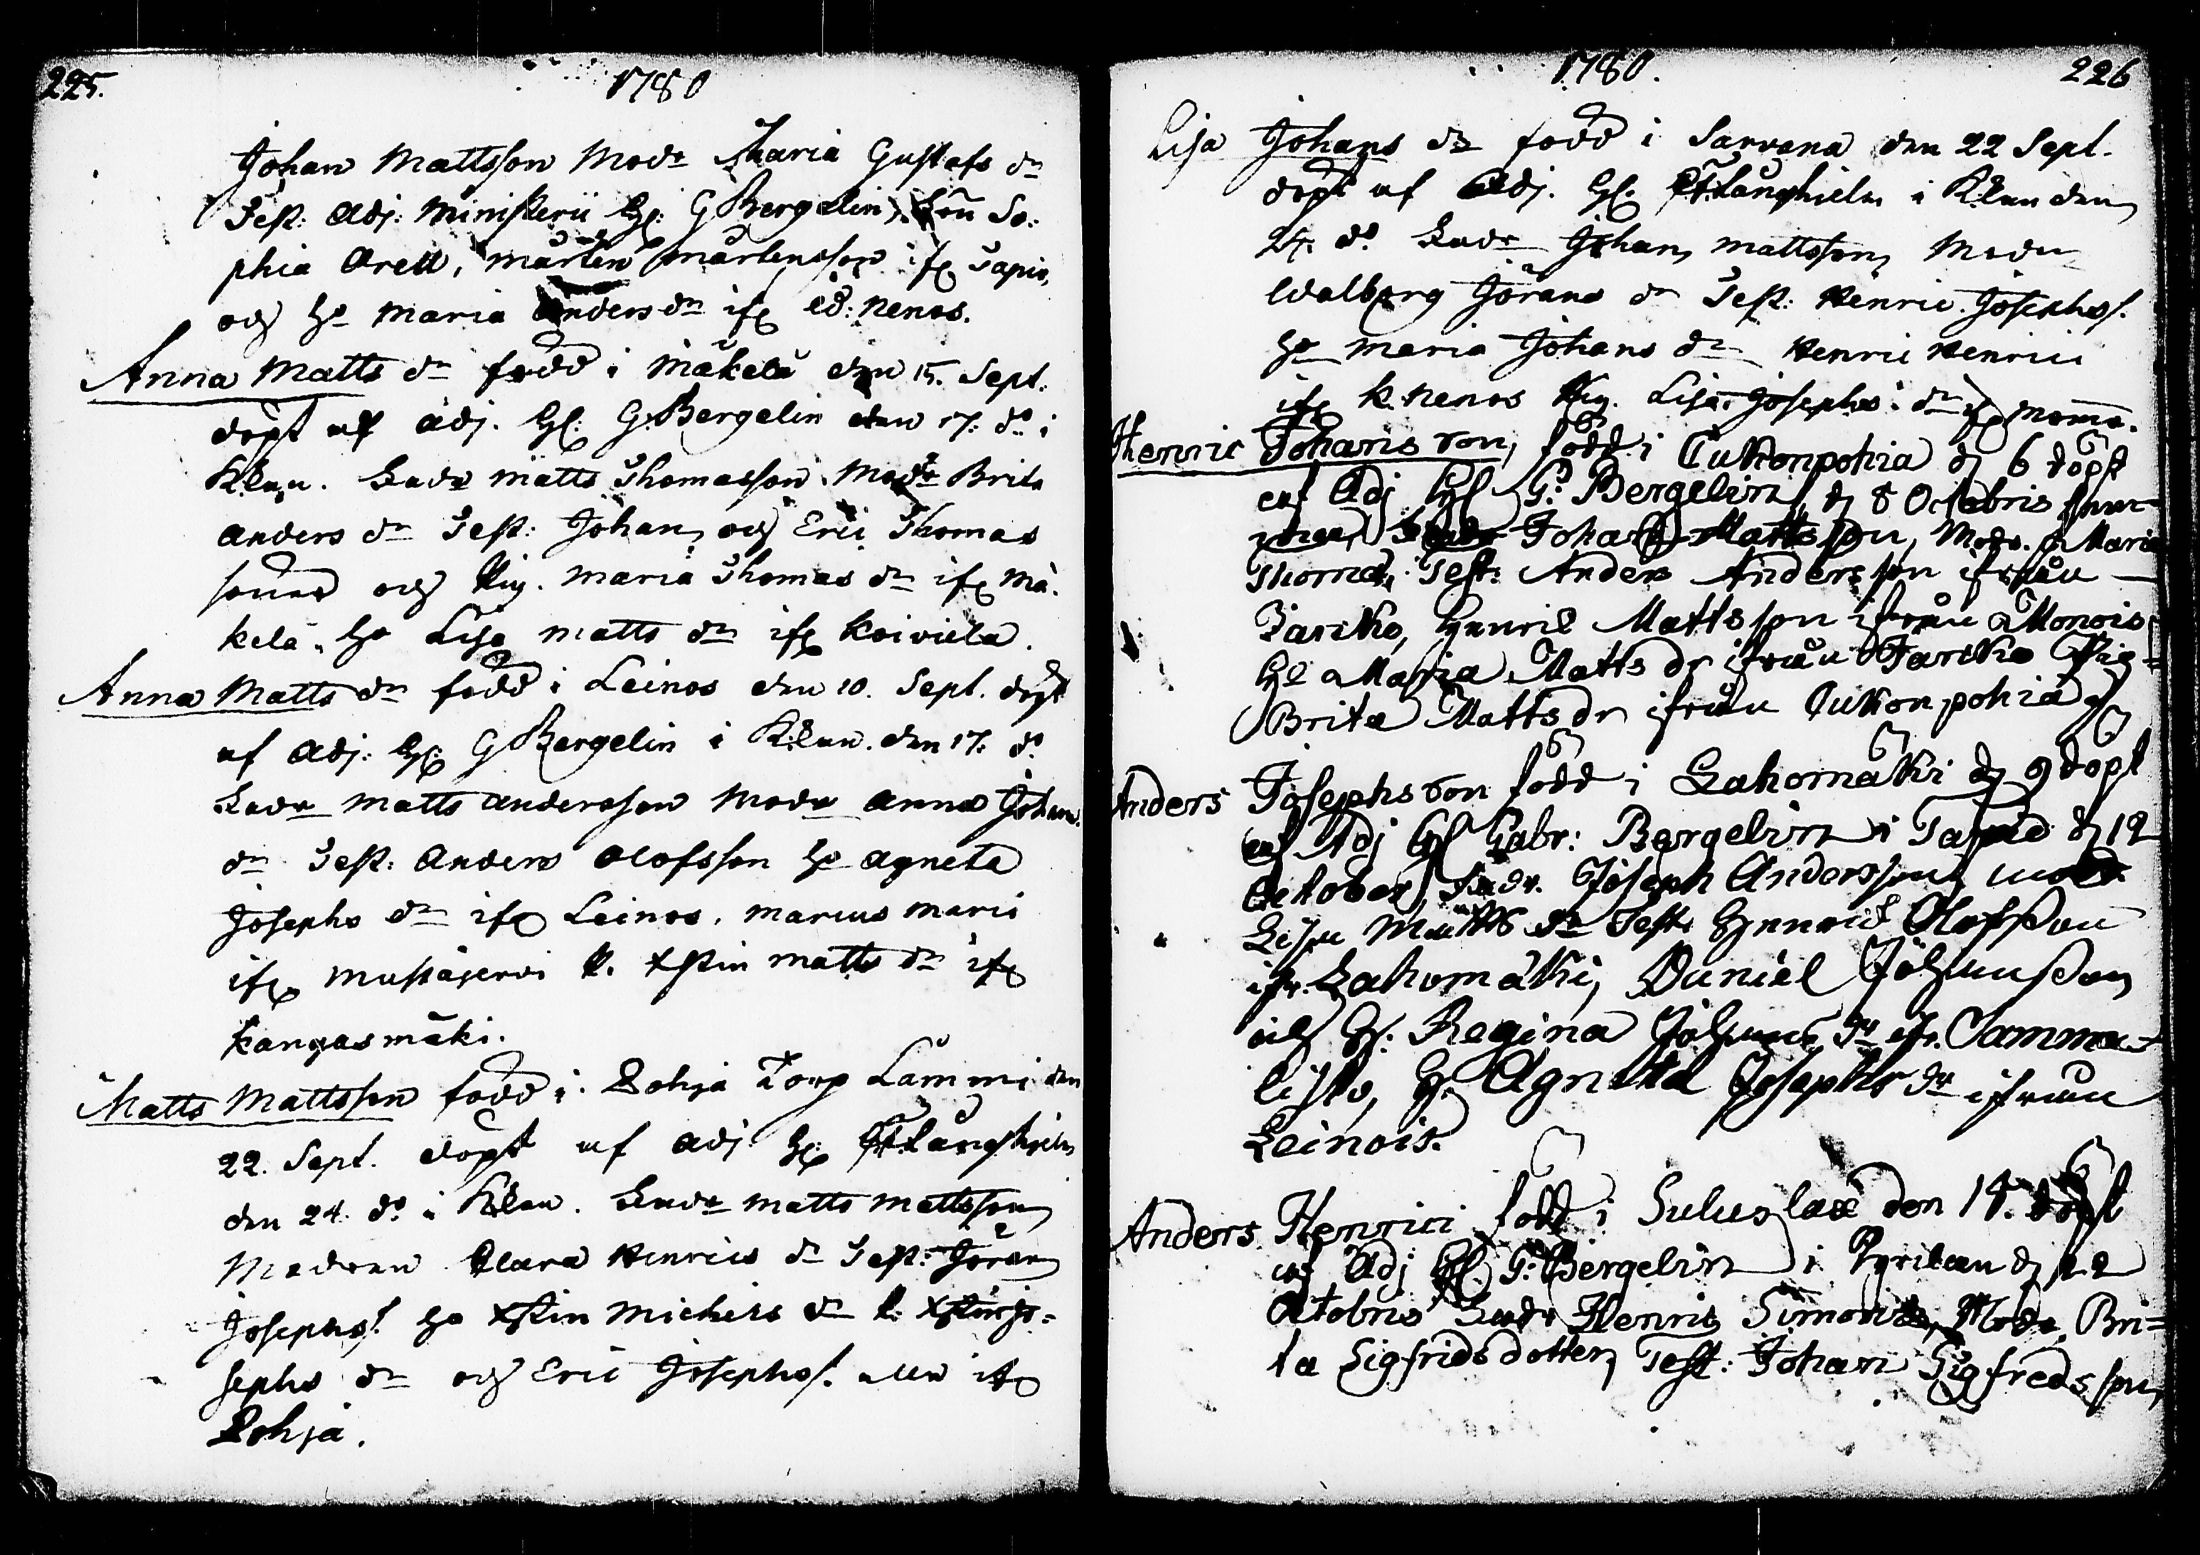 225. 1780
Johan Mattsson Modr Maria Gustafs dr
Test: Adj: Ministerii H: G Bergelin, So:
phia Orell, Mårten Mårtensson ifr Tapio,
och H: Maria Anders dr ifr nenos.
Anna Matts dr född i Mäkelä den 15. Sept.
döpt af Adj. H: G: Bergelin den 17. do i
Kÿrkan. Fadr Matts Thomasson Modr Brita
Anders dr Test: Johan och Eric Thomas
söner och Pig. Maria Thomas dr ifr Mä-
kelä. H: Lisa Matts dr ifr Koiviela.
Anna Matts dr född i Leinos den 10. Sept. döpt
af Adj: H: G Bergelin i Kÿrkan. den 17. do
Fadr Matts Andersson Modr Anna Johans
dr Test: Anders Olofsson H: Agneta
Josephs dr ifr Leinos, Marcus Marci
ifr Mustajervi P. Xstin Matts dr ifr
Kangasmäki.
Matts Mattsson född i Pohja Torp Lammi den
22. Sept. döpt af Adj H: Långhielm
den 24. do i Kÿrkan. Fadr Matts Mattsson
Modren Clara Henrics dr Test: Jöran
Josephss. H: Xstin Michels dr P. Xstin Jo-
sephs dr och Eric Josephss. ifr
Pohja.
1780. 226
Lisa Johans dr född i Sarvana den 22 Sept.
döpt af Adj. H: Långhielm i Kÿrkan den
24. do Fadr Johan Mattsson, Modr
Walberg Jörans dr Test: Henric Josephss.
H: Maria Johans dr Henric Henrici
ifr nenos Pig. Lisa Josephs dr ifr
Henric Johansson, född i Cukonpohia d 6 döpt
af Adj H G: Bergelin d 8 Octobris
Fadr Johan Mattsson, Modr. Maria
Thomæ. Test: Anders Andersson ifrån
Jariko, Henric Mattsson ifrån Monois
H: Maria Matts dr ifrån Jariko Pig-
Brita Matts dr ifrån Cukonpohia
Anders Josephsson född i Lahomäki d 9 döpt
af Adj H Gabr: Bergelin i Tapio d 12
October, Fadr. Joseph Andersson, modr.
Lisa Matts dr Test: Henric Olofsson
ifr. Lahomäki, Daniel Johansson
och H: Regina Johans dr ifr. Samma-
listo, H: Agneta Josephs dr ifrån
Leinois.
Anders Henrici född i Sulus den 14. döpt
af Adj H. G: Bergelin i Kyrkan d 22
Octobris Fadr Henric Simonis, Modr. Bri=
ta Sigfridsdotter, Test: Johan Sigfredsson,